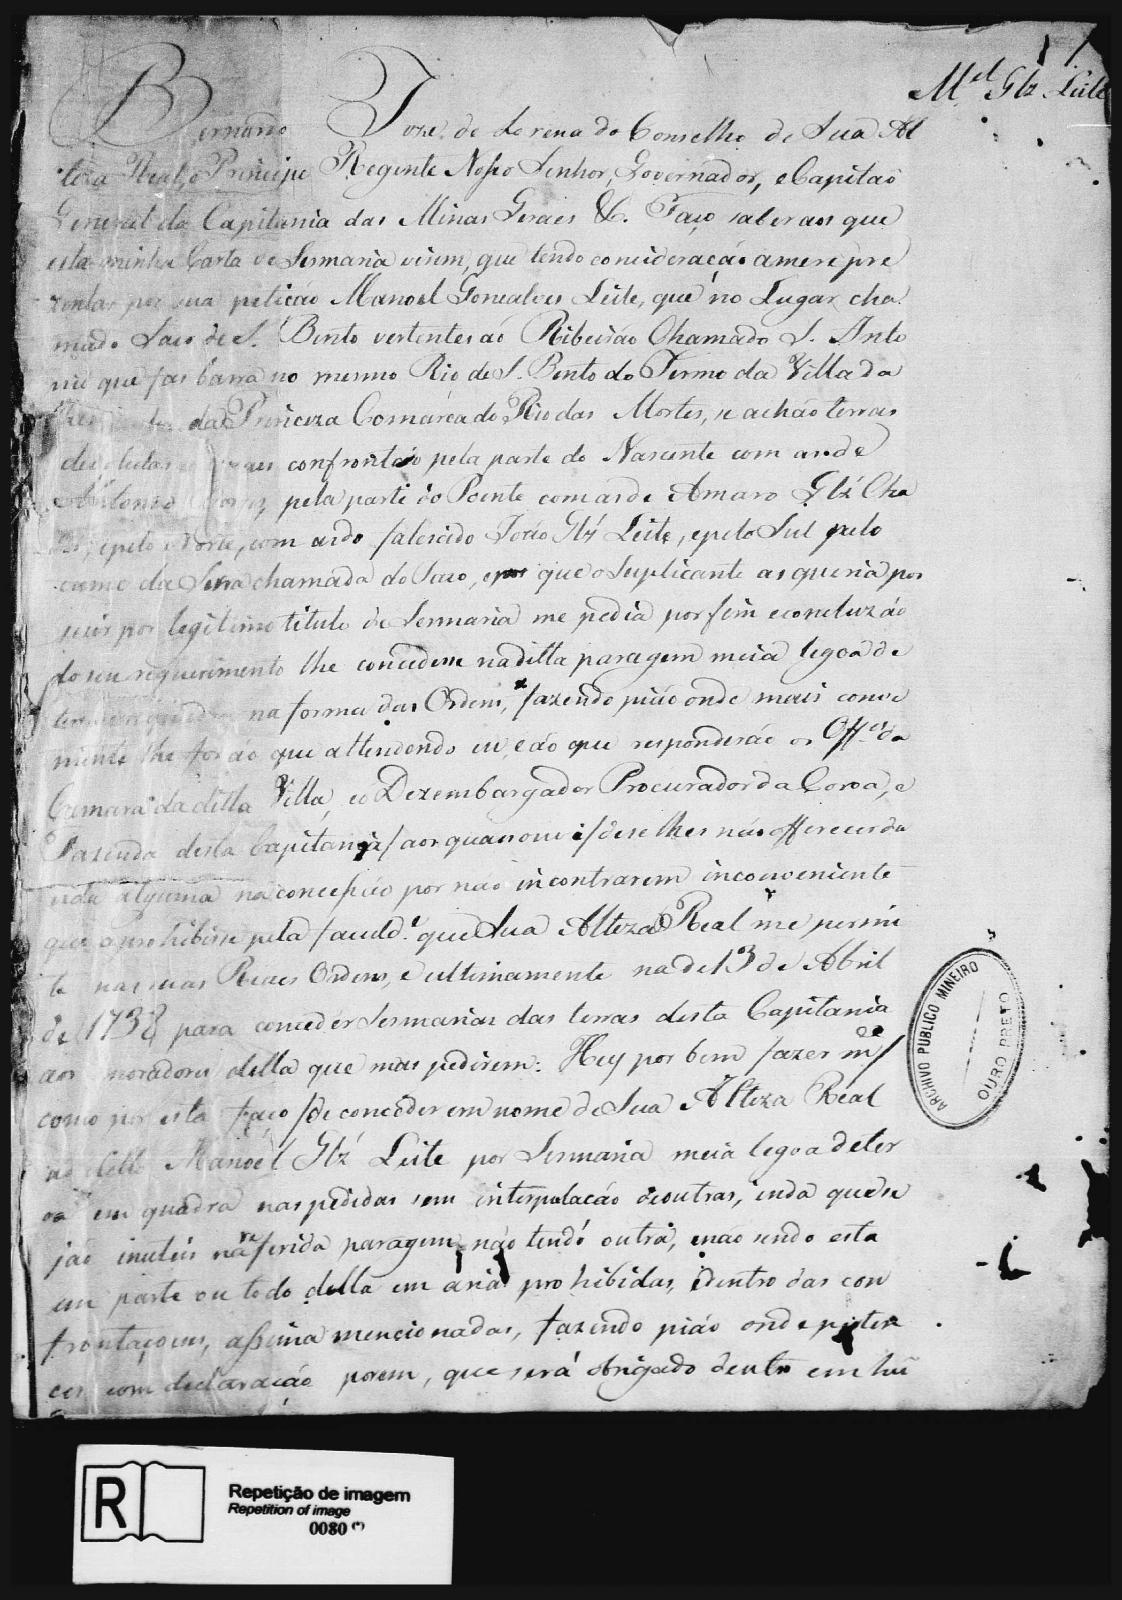 1
M.el Glz Leite
Bernardo Joze de Lorena do Conselho de Sua Al
teza Real, o Principe Regente Nosso Senhor, Governador, e Capitaõ
General da Capitania das Minas Geraes &c. Faço saber aos que
esta minha Carta de Sesmaria virem, que tendo concideraçaõ a me re pre
zentar por sua petiçaõ Manoel Gonçalves Leite, que no Lugar cha
mado Saco de S. Bento vertentes aó Ribeiraõ Chamado S. Anto
nio que fas barra no mesmo Rio de S. Bento do Termo da Villa da
da Princeza Comarca do Rio das Mortes, se achaõ terras
confrontaõ pela parte do Nascente com as de
Antonio pela parte do Poente com as de Amaro Glz' Cha
, e pelo Norte, com as do falescido Joaõ Glz' Leite, e pelo Sul pelo
cume da Serra chamada do Saco, e por que o Suplicante as queria pos
suir por legitimo titulo de Sesmaria me pedia por fim e concluzaõ
do seu requerimento lhe concedesse na ditta paragem meia legoa de
na forma das Ordens, fazendo piaõ onde mais conve
niente lhe for ao que attendendo eu, e ao que responderaõ os Off.es da
Camara da ditta Villa, e o Dezembargador Procurador da Coroa, e
Fazenda desta Capitania / aos quaes ouvi / de se lhes naõ offerecer du
vida alguma na concessaõ por naõ incontrarem inconveniente
que a prohibisse pela faculd.e que Sua Alteza Real me permi
te nas suas Reaes Ordens, e ultimamente na de 13 de Abril
de 1738 para conceder Sesmarias das terras desta Capitania
aos moradores della que mas pedirem: Hey por bem fazer m.ce /
como por esta faço / de conceder em nome de Sua Alteza Real
ao ditto Manoel Glz' Leite por Sesmaria meia legoa de ter
ra em quadra nas pedidas sem interpolaçaõ de outras, inda que se
jaõ inuteis na referida paragem, naõ tendo outra, e naõ sendo esta
em parte ou todo della em arias prohibidas, e dentro das con
frontaçoens, assima mencionadas, fazendo piaõ onde perten
cer, com declaraçaõ porem, que será obrigado dentro em hũ
ARCHIVO PUBLICO MINEIRO
OURO PRETO
R
Repetição de imagem
Repetition of image
0080 (*)